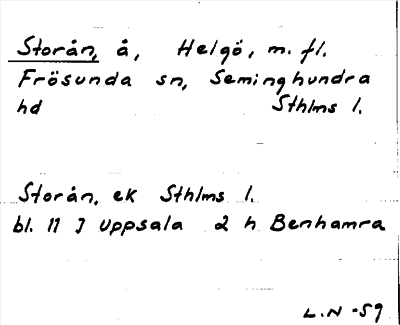 Storån, å, Helgö, m. fl.
Frösunda sn, Seminghundra
hd Sthlms l.
Storån, ek Sthlms l.
bl. 11 J Uppsala 2 h Benhamra
L.N -59